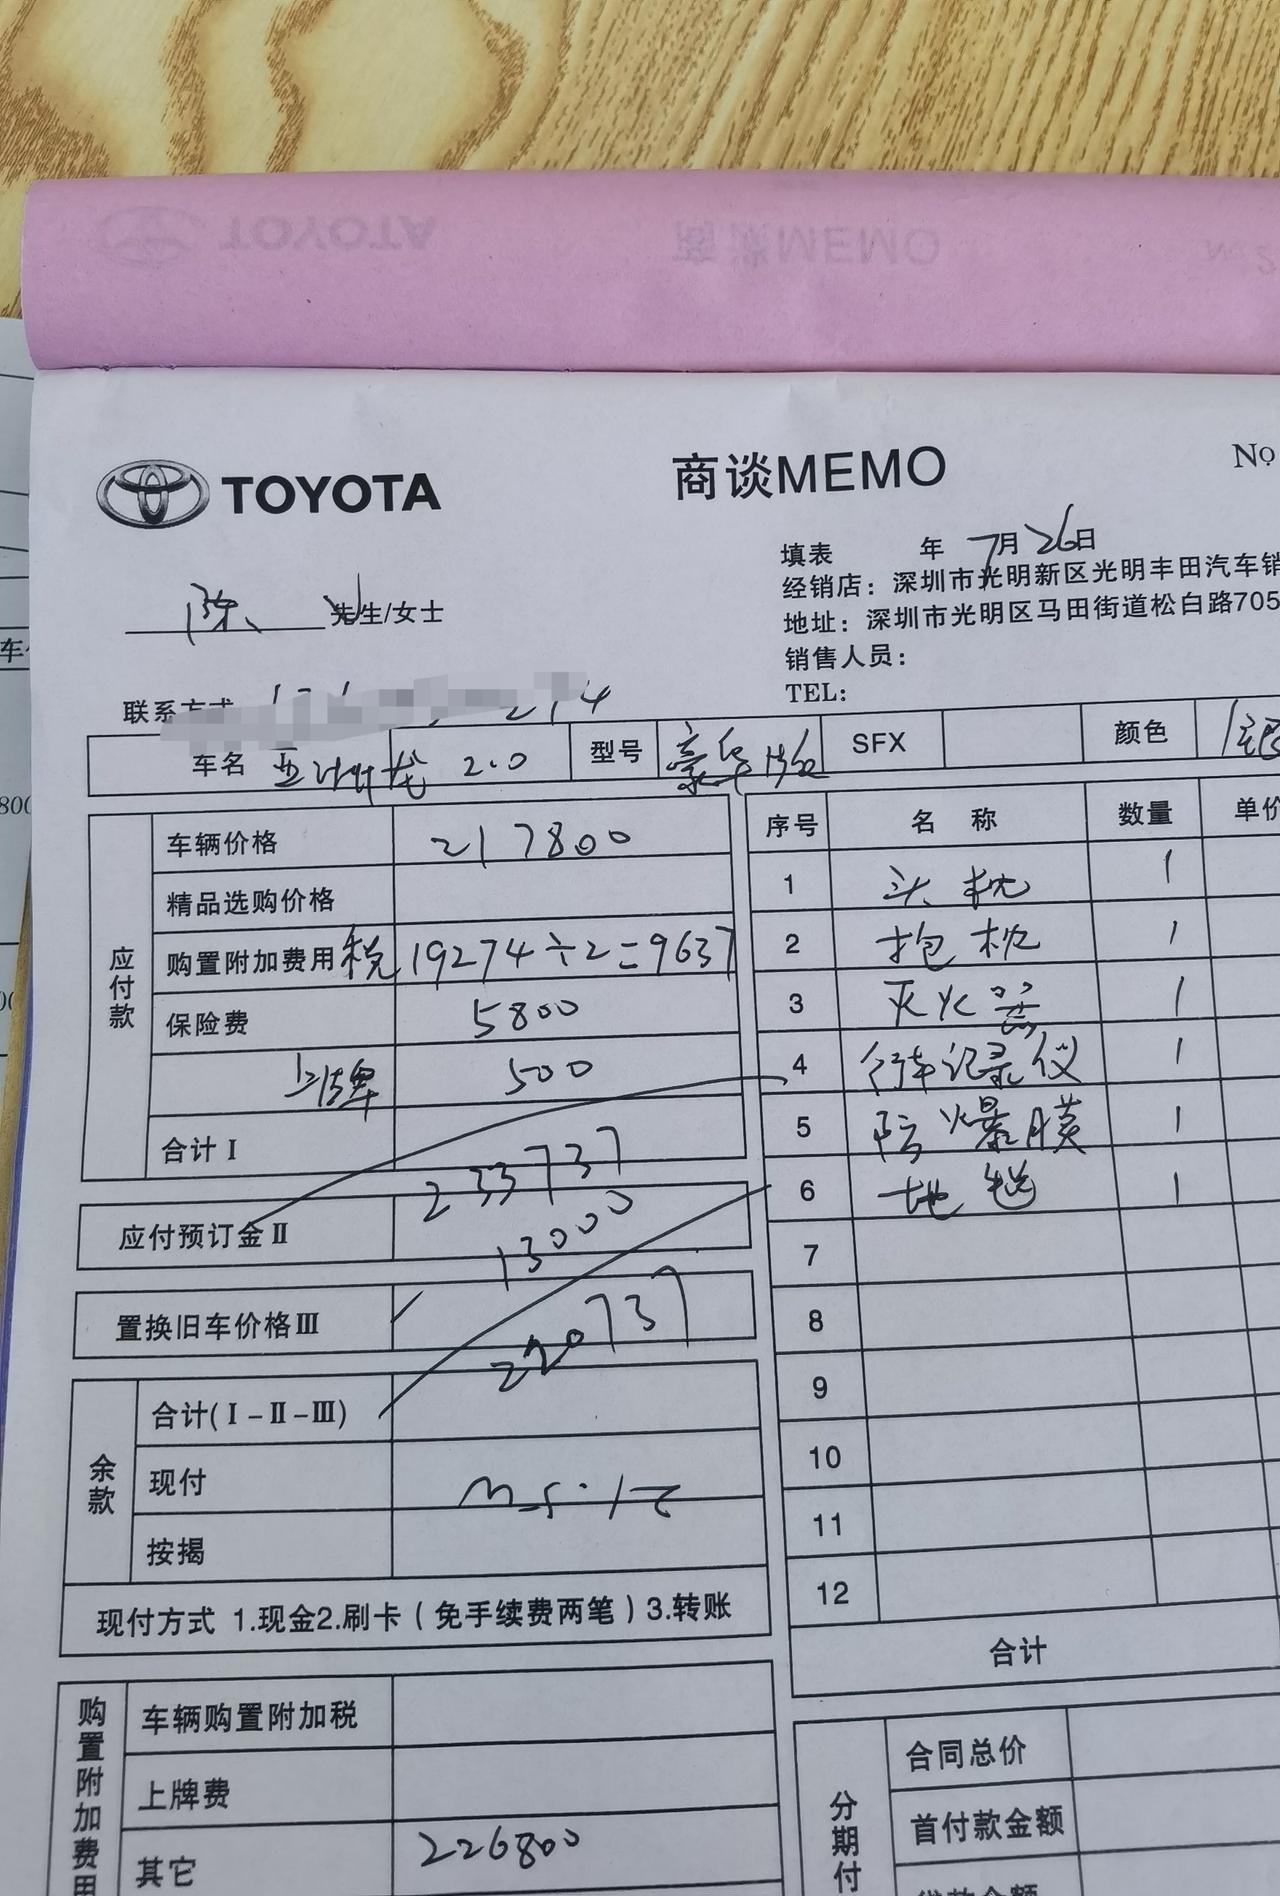 TOYOTA 商谈MEMO
TOYOTA 商谈MEMO No
填表 年 7月26日
陈 先生/女士
经销店：深圳市光明新区光明丰田汽车销
地址：深圳市光明区马田街道松白路705
销售人员：
TEL：
联系方式
车名 亚洲龙 2.0 型号 豪华版 SFX 颜色
应付款
车辆价格 217800
精品选购价格
购置附加费用税 19274÷2=9637
保险费 5800
上牌 500
合计Ⅰ 233737
应付预订金Ⅱ 13000
置换旧车价格Ⅲ 220737
余款
合计(Ⅰ-Ⅱ-Ⅲ)
现付
按揭
现付方式 1.现金2.刷卡（免手续费两笔）3.转账
购置附加费用
车辆购置附加税
上牌费
其它 226800
序号 名称 数量 单价
1 头枕 1
2 抱枕 1
3 灭火器 1
4 行车记录仪 1
5 防爆膜 1
6 地毯 1
7
8
9
10
11
12
合计
分期付
合同总价
首付款金额